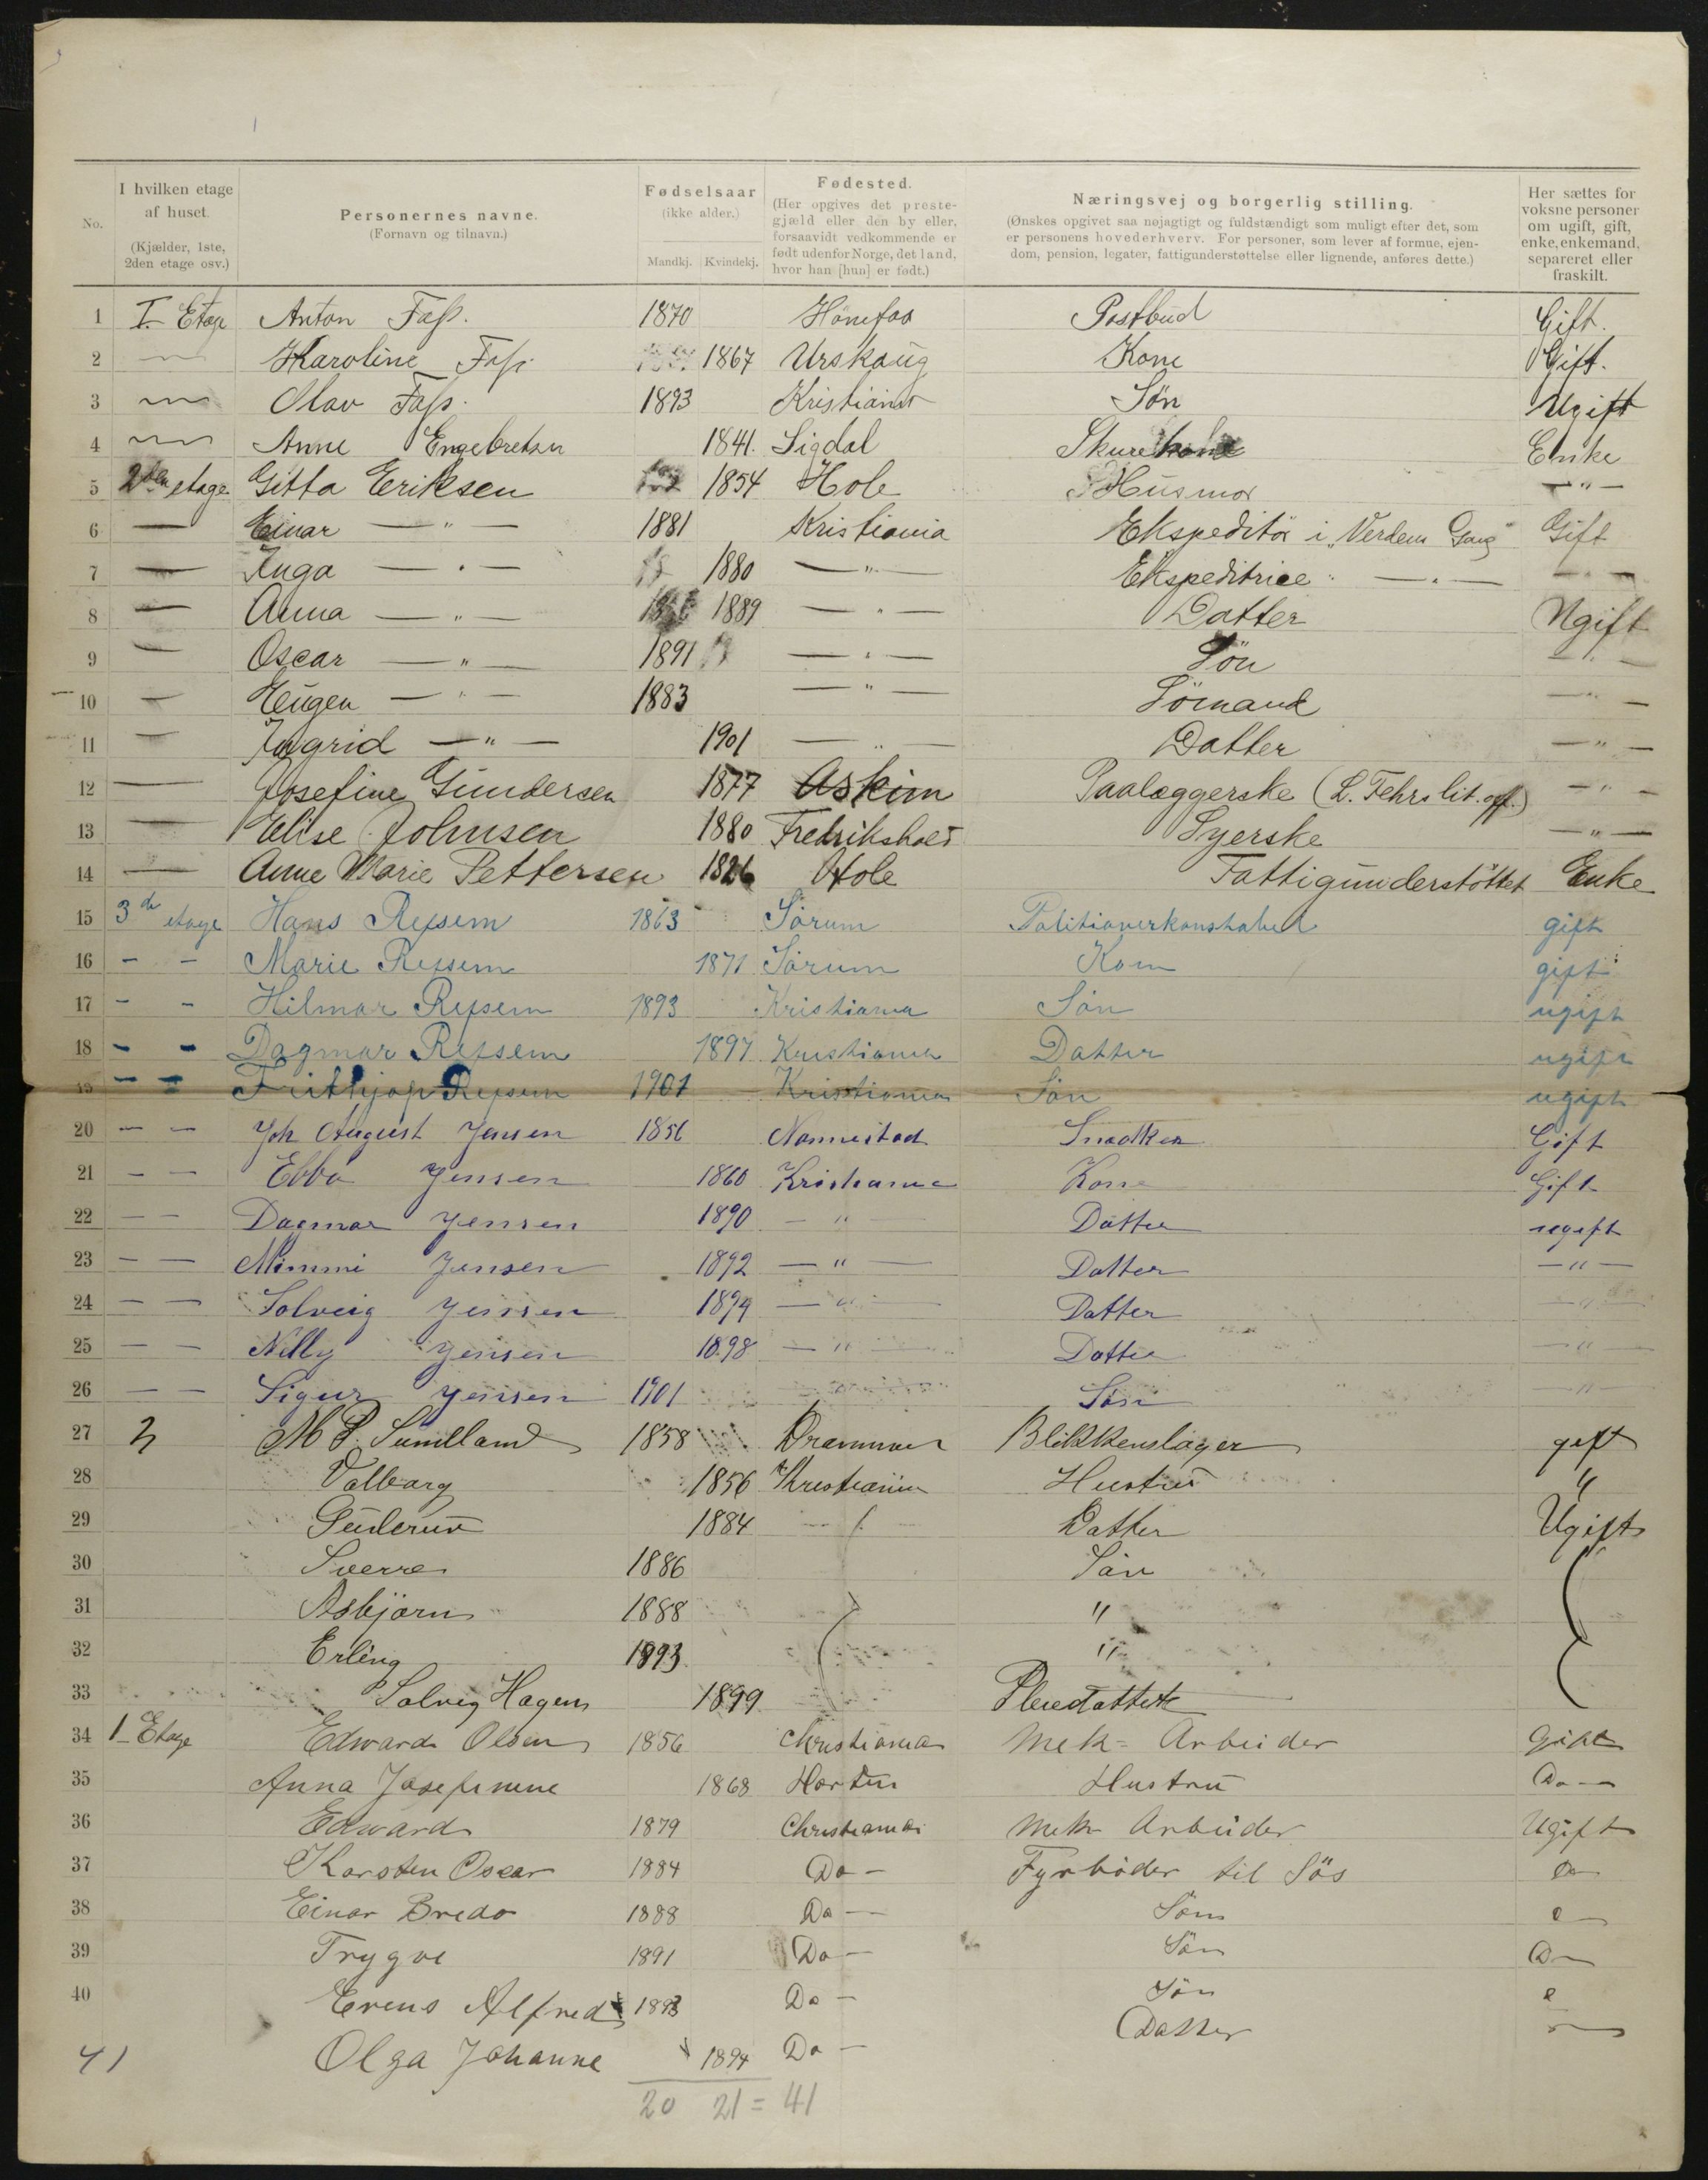 No. I hvilken etage af huset. (Kjælder, 1ste, 2den etage osv.) Personernes navne. (Fornavn og tilnavn.) Fødselsaar (ikke alder.) Mandkj. Kvindekj. Fødested. (Her opgives det prestegjæld eller den by eller, forsaavidt vedkommende er født udenfor Norge, det land, hvor han [hun] er født.) Næringsvej og borgerlig stilling. (Ønskes opgivet saa nøjagtigt og fuldstændigt som muligt efter det, som er personens hovederhverv. For personer, som lever af formue, ejendom, pension, legater, fattigunderstøttelse eller lignende, anføres dette.) Her sættes for voksne personer om ugift, gift, enke, enkemand, separeret eller fraskilt.
1 I. Etage Anton Fass. 1870 Hönefos Postbud Gift.
2 — Karoline Fass 1867 Urskoug Kone Gift.
3 — Olav Fass. 1893 Kristiania Sön Ugift
4 — Anne Engebretsen 1841. Sigdal Skurekone Enke
5 2den etage Gitta Eriksen 1854 Hole Husmor — " —
6 — Einar — " — 1881 Kristiania Ekspeditör i „Verdens Gang" Gift
7 — Inga — " — 1880 — " — Ekspeditrice — " — — " —
8 — Anna — " — 1889 — " — Datter Ugift
9 — Oscar — " — 1891 — " — Sön — " —
10 — Eugen — " — 1883 — " — Sömand — " —
11 — Ingrid — " — 1901 — " — Datter — " —
12 — Josefine Gundersen 1877 Askim Paalæggerske (L. Fehrs lit. off.) — " —
13 — Elise Johnsen 1880 Fredrikshald Syerske — " —
14 — Anne Marie Pettersen 1826 Hole Fattigunderstöttet Enke
15 3de etage Hans Refsem 1863 Sörum Politioverkonstabel gift
16 - - Marie Refsem 1871 Sörum Kone gift
17 - - Hilmar Refsem 1893 Kristiania Sön ugift
18 - - Dagmar Refsem 1897 Kristiania Datter ugift
19 - - Frithjof Refsem 1901 Kristiania Sön ugift
20 — — Joh August Jensen 1856 Nannestad Snedker Gift
21 — — Ebba Jensen 1860 Kristiania Kone Gift
22 — — Dagmar Jensen 1890 — " — Datter ugift
23 — — Mimmi Jensen 1892 — " — Datter — " —
24 — — Solveig Jensen 1894 — " — Datter — " —
25 — — Nelly Jensen 1898 — " — Datter — " —
26 — — Sigur Jensen 1901 — " — Sön — " —
27 2 M P. Sundland 1858 Drammen Blikkenslager gift
28 Valborg 1856 Khristiania Hustru "
29 Guderun 1884 — " — Datter Ugift
30 Sverre 1886 Sön
31 Asbjörn 1888 "
32 Erling 1893 "
33 Solveig Hagen 1899 Pleiedatter
34 1 Etage Edward Olsen 1856 Christiania Mek- Arbeider Gift
35 Anna Josefinene 1868 Horten Hustru Do —
36 Edward 1879 Christiania Mek- Arbeider Ugift
37 Karsten Oscar 1884 Do — Fyrböder til Sös Do
38 Einar Bredo 1888 Do — Sön
39 Trygve 1891 Do — Sön Do
40 Erens Alfred 1893 Do — Sön
41 Olga Johanne 1894 Do — Datter
20 21 = 41